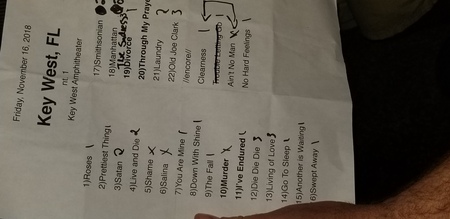 Friday, November 16, 2018
Key West, FL
nt. 1
Key West Amphitheater
1)Roses 1
2)Prettiest Thing 1
3)Satan 2
4)Live and Die 2
5)Shame x
6)Salina x
7)You Are Mine 1
8)Down With Shine 1
9)The Fall 1
10)Murder x
11)I've Endured 1
12)Die Die Die 3
13)Living of Love 3
14)Go To Sleep 1
15)Another is Waiting 1
16)Swept Away 1
17)Smithsonian
18)Manhattan
19)Divorce 1
20)Through My Prayers
21)Laundry 2
22)Old Joe Clark 3
//encore//
Clearness 1
Trouble Letting Go 1
Ain't No Man x
No Hard Feelings 1